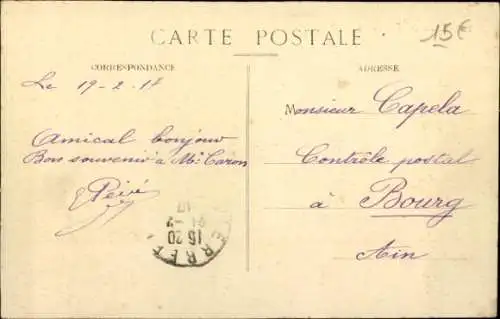 CARTE POSTALE
15€
CORRESPONDANCE
Le 19-2-17
Amical bonjour
Bon souvenir à Mr Caron
ADRESSE
Monsieur Capela
Contrôle postal
à Bourg
Ain
15 20